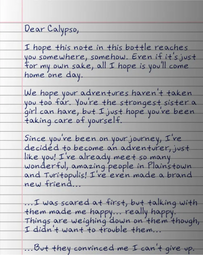 Dear Calypso,
I hope this note in this bottle reaches
you somewhere, somehow. Even if it's just
for my own sake, all I hope is you'll come
home one day.
We hope your adventures haven't taken
you too far. You're the strongest sister a
girl can have, but I just hope you've been
taking care of yourself.
Since you've been on your journey, I've
decided to become an adventurer, just
like you! I've already met so many
wonderful, amazing people in Plainstown
and Turitopulis! I've even made a brand
new friend...
...I was scared at first, but talking with
them made me happy... really happy.
Things are weighing down on them though,
I didn't want to trouble them...
...But they convinced me I can't give up.